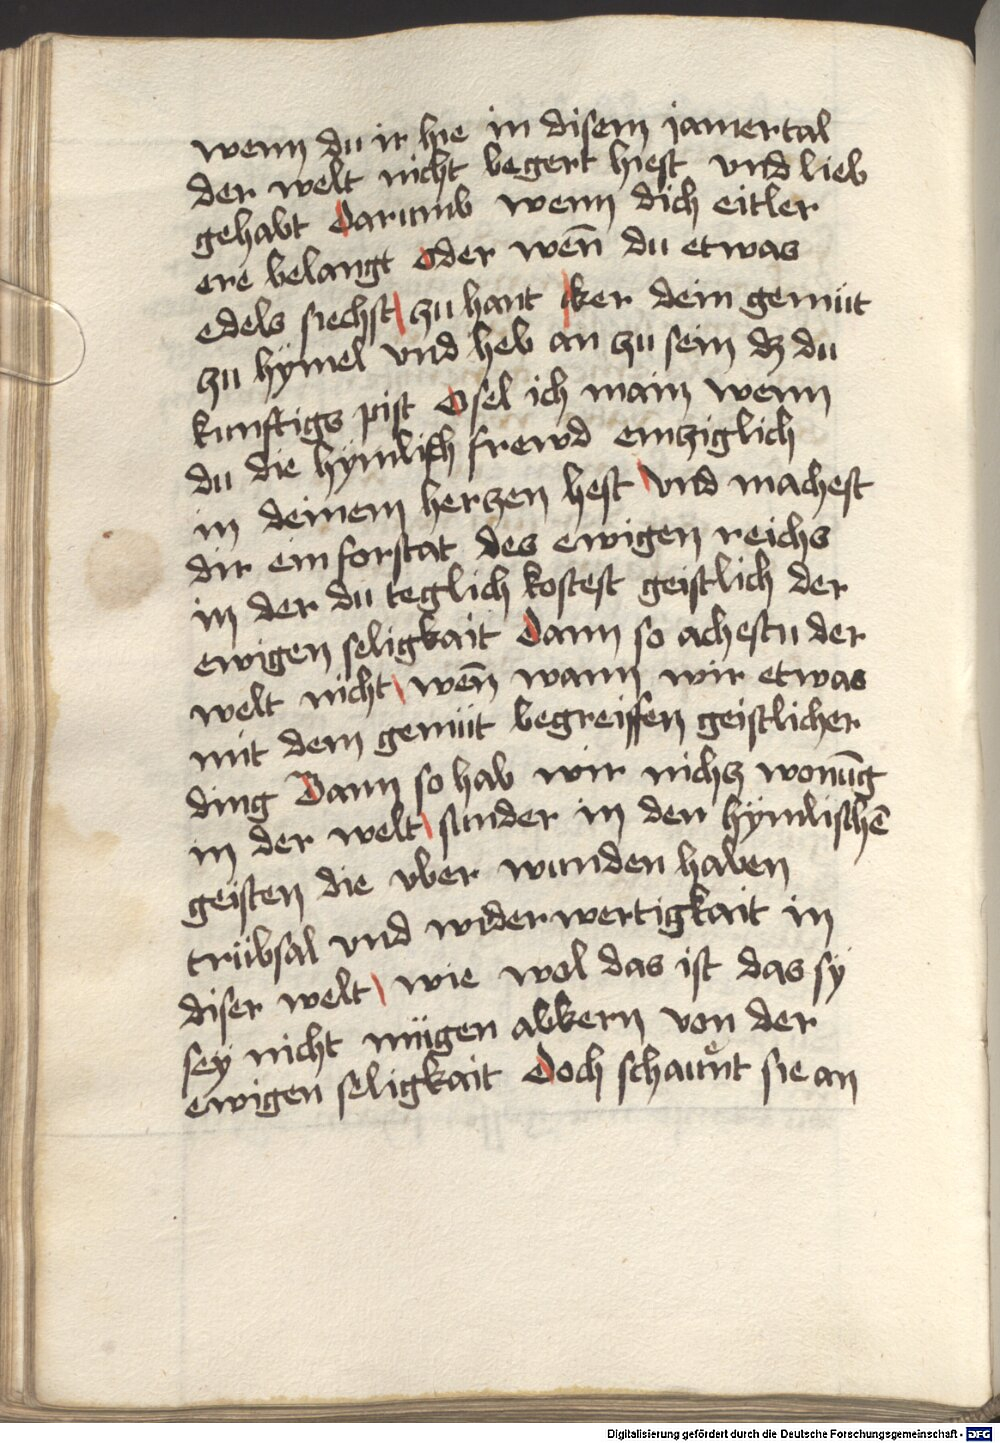 wenn du ir hie in disem jamertal
der welt nicht begert hiest vnd lieb
gehabt Darumb wenn dich eitler
ere belangt oder wen̄ du etwas
edels siechst zu hant ker dein gemüt
zu hymel vnd heb an zu sein dz du
kunftigs pist O sel ich main wenn
du die hymlisch frewd emziglich
in deinem herzen hest vnd machest
dir ein forstat des ewigen reichs
in der du teglich kostest geistlich der
ewigen seligkait Dann so achestu der
welt nicht wen̄ wann wir etwas
mit dem gemüt begreiffen geistlicher
ding Dann so hab wir nichz wonūg
in der welt sunder in den hymlischē
geisten die vber wunden haben
trübsal vnd widerwertigkait in
diser welt wie wol das ist das sy
sey nicht mügen abkern von der
ewigen seligkait Doch schauͤnt sie an
Digitalisierung gefördert durch die Deutsche Forschungsgemeinschaft - DFG